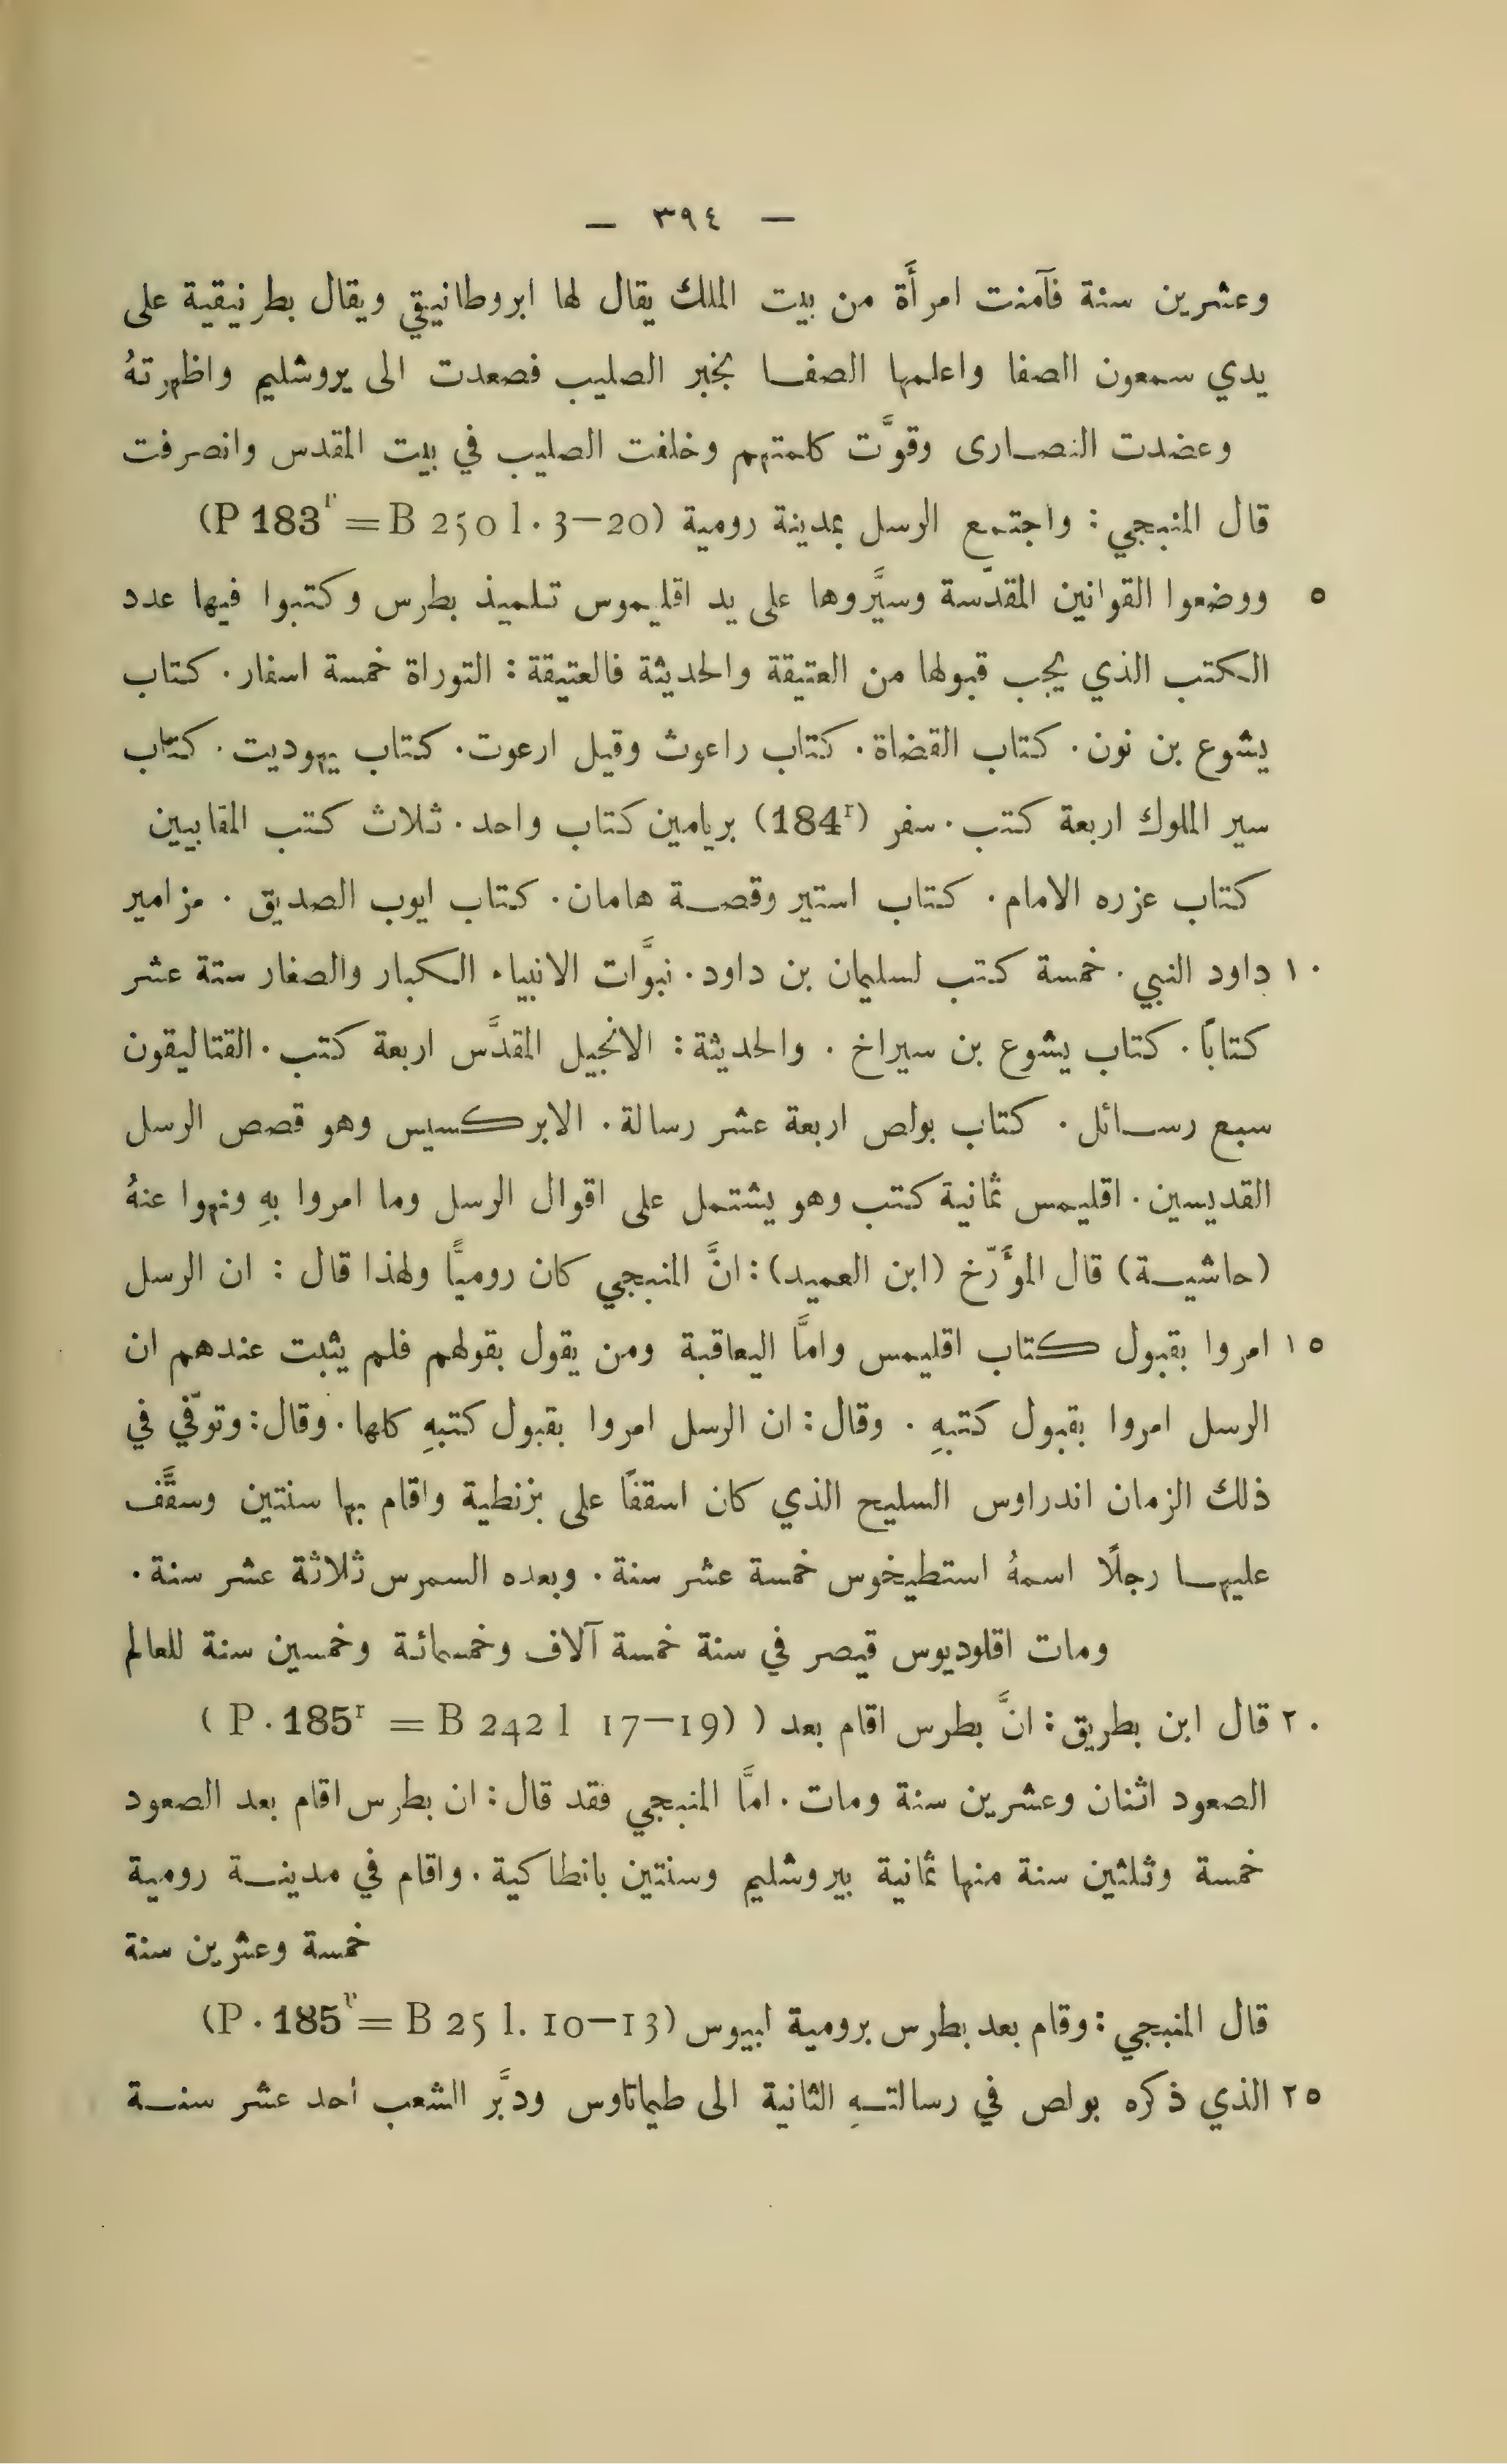 — ٣٩٤ —
وعشرين سنة فآمنت امرأَة من بيت الملك يقال لها ابروطانيقي ويقال بطرنيقية على
يدي سمعون الصفا واعلمها الصفا بخبر الصليب فصعدت الى يروشليم واظهرتهُ
وعضدت النصارى وقوَّت كلمتهم وخلفت الصليب في بيت المقدس وانصرفت
قال المنبجي: واجتمع الرسل بمدينة رومية (P 183ᵛ = B 250 l. 3–20)
٥ ووضعوا القوانين المقدَّسة وسيَّروها على يد اقليموس تلميذ بطرس وكتبوا فيها عدد
الكتب الذي يجب قبولها من العتيقة والحديثة فالعتيقة: التوراة خمسة اسفار. كتاب
يشوع بن نون. كتاب القضاة. كتاب راعوث وقيل ارعوت. كتاب يهوديت. كتاب
سير الملوك اربعة كتب. سفر (184ʳ) بريامين كتاب واحد. ثلاث كتب المقابيين
كتاب عزره الامام. كتاب استير وقصة هامان. كتاب ايوب الصديق. مزامير
١٠ داود النبي. خمسة كتب لسليمان بن داود. نبوَّات الانبياء الكبار والصغار ستة عشر
كتابًا. كتاب يشوع بن سيراخ. والحديثة: الانجيل المقدَّس اربعة كتب. القتاليقون
سبع رسائل. كتاب بولص اربعة عشر رسالة. الابركسيس وهو قصص الرسل
القديسين. اقليمس ثمانية كتب وهو يشتمل على اقوال الرسل وما امروا بهِ ونهوا عنهُ
(حاشية) قال المؤَرّخ (ابن العميد): انَّ المنبجي كان روميًّا ولهذا قال: ان الرسل
١٥ امروا بقبول كتاب اقليمس وامَّا اليعاقبة ومن يقول بقولهم فلم يثبت عندهم ان
الرسل امروا بقبول كتبهِ. وقال: ان الرسل امروا بقبول كتبهِ كلها. وقال: وتوّفي في
ذلك الزمان اندراوس السليح الذي كان اسقفًا على بزنطية واقام بها سنتين وسقَّف
عليها رجلًا اسمهُ استطيخوس خمسة عشر سنة. وبعده السمرس ثلاثة عشر سنة.
ومات اقلوديوس قيصر في سنة خمسة آلاف وخمسمائة وخمسين سنة للعالم
٢٠ قال ابن بطريق: انَّ بطرس اقام بعد ( (P. 185ʳ = B 242 l 17–19 )
الصعود اثنان وعشرين سنة ومات. امَّا المنبجي فقد قال: ان بطرس اقام بعد الصعود
خمسة وثلثين سنة منها ثمانية بيروشليم وسنتين بانطاكية. واقام في مدينة رومية
خمسة وعشرين سنة
قال المنبجي: وقام بعد بطرس برومية ابيوس (P. 185ᵛ = B 25 l. 10–13)
٢٥ الذي ذكره بولص في رسالتهِ الثانية الى طيماتاوس ودبَّر الشعب احد عشر سنة